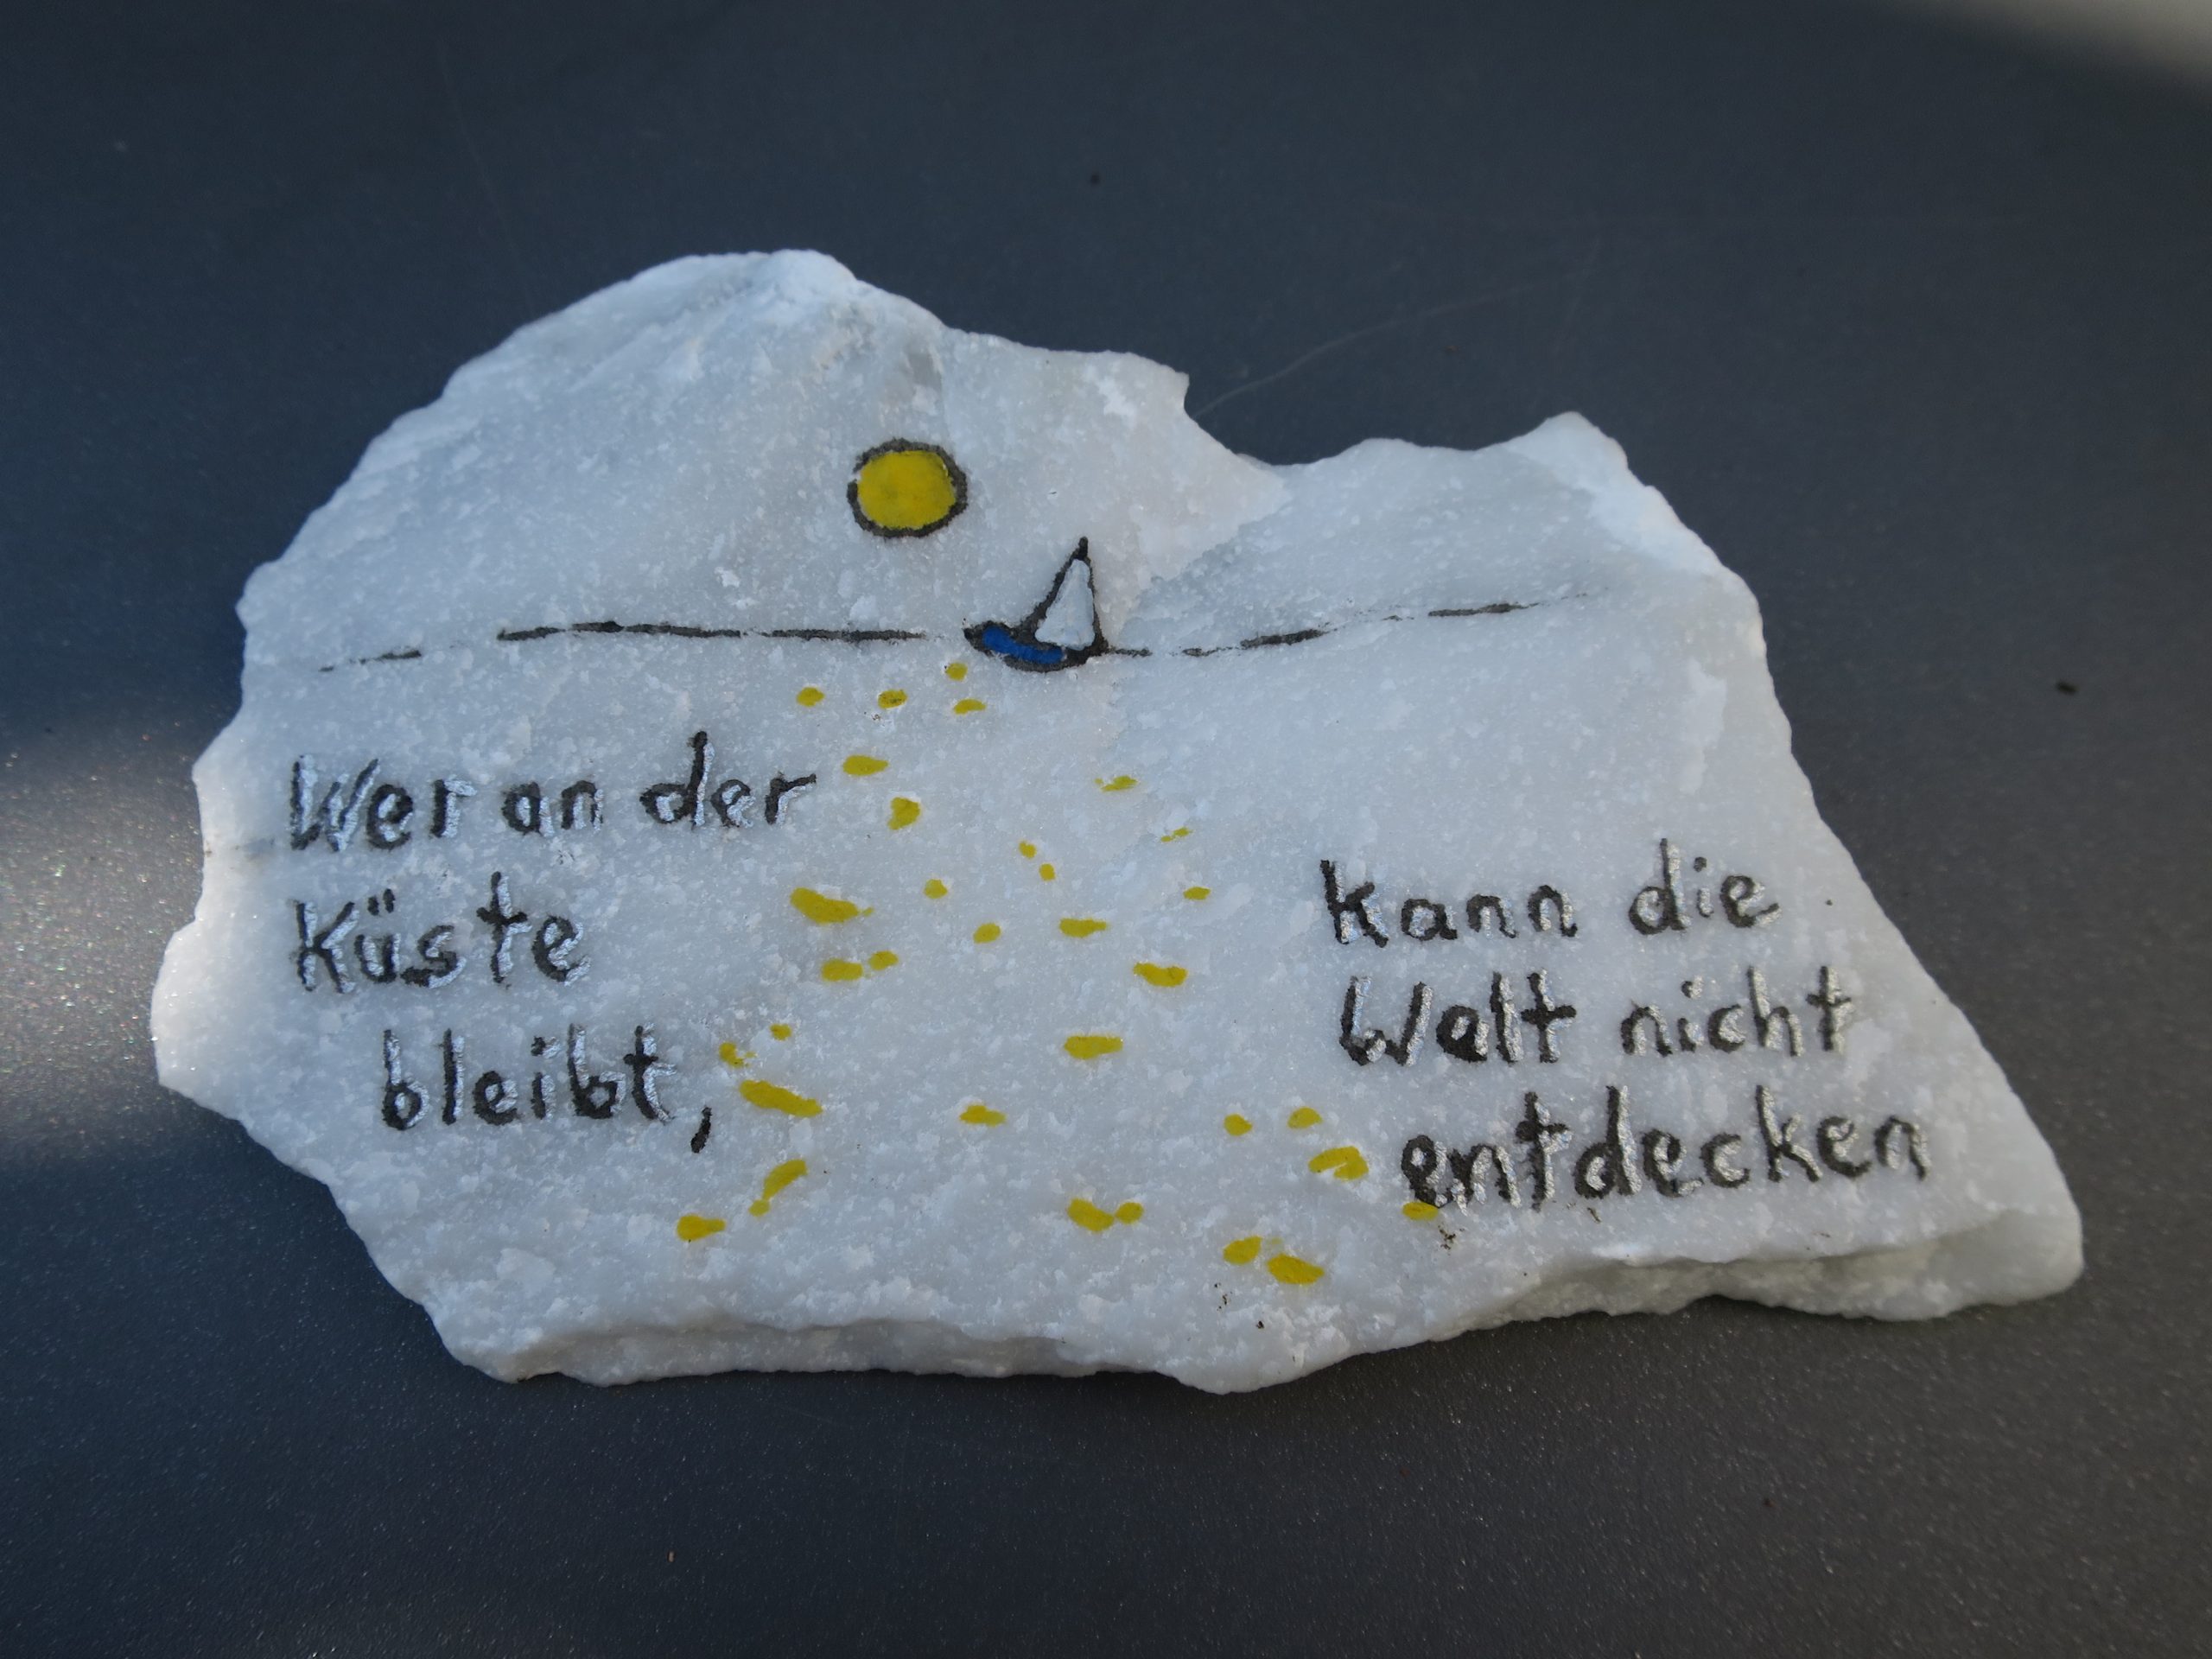 Wer an der
Küste
bleibt,
kann die
Welt nicht
entdecken